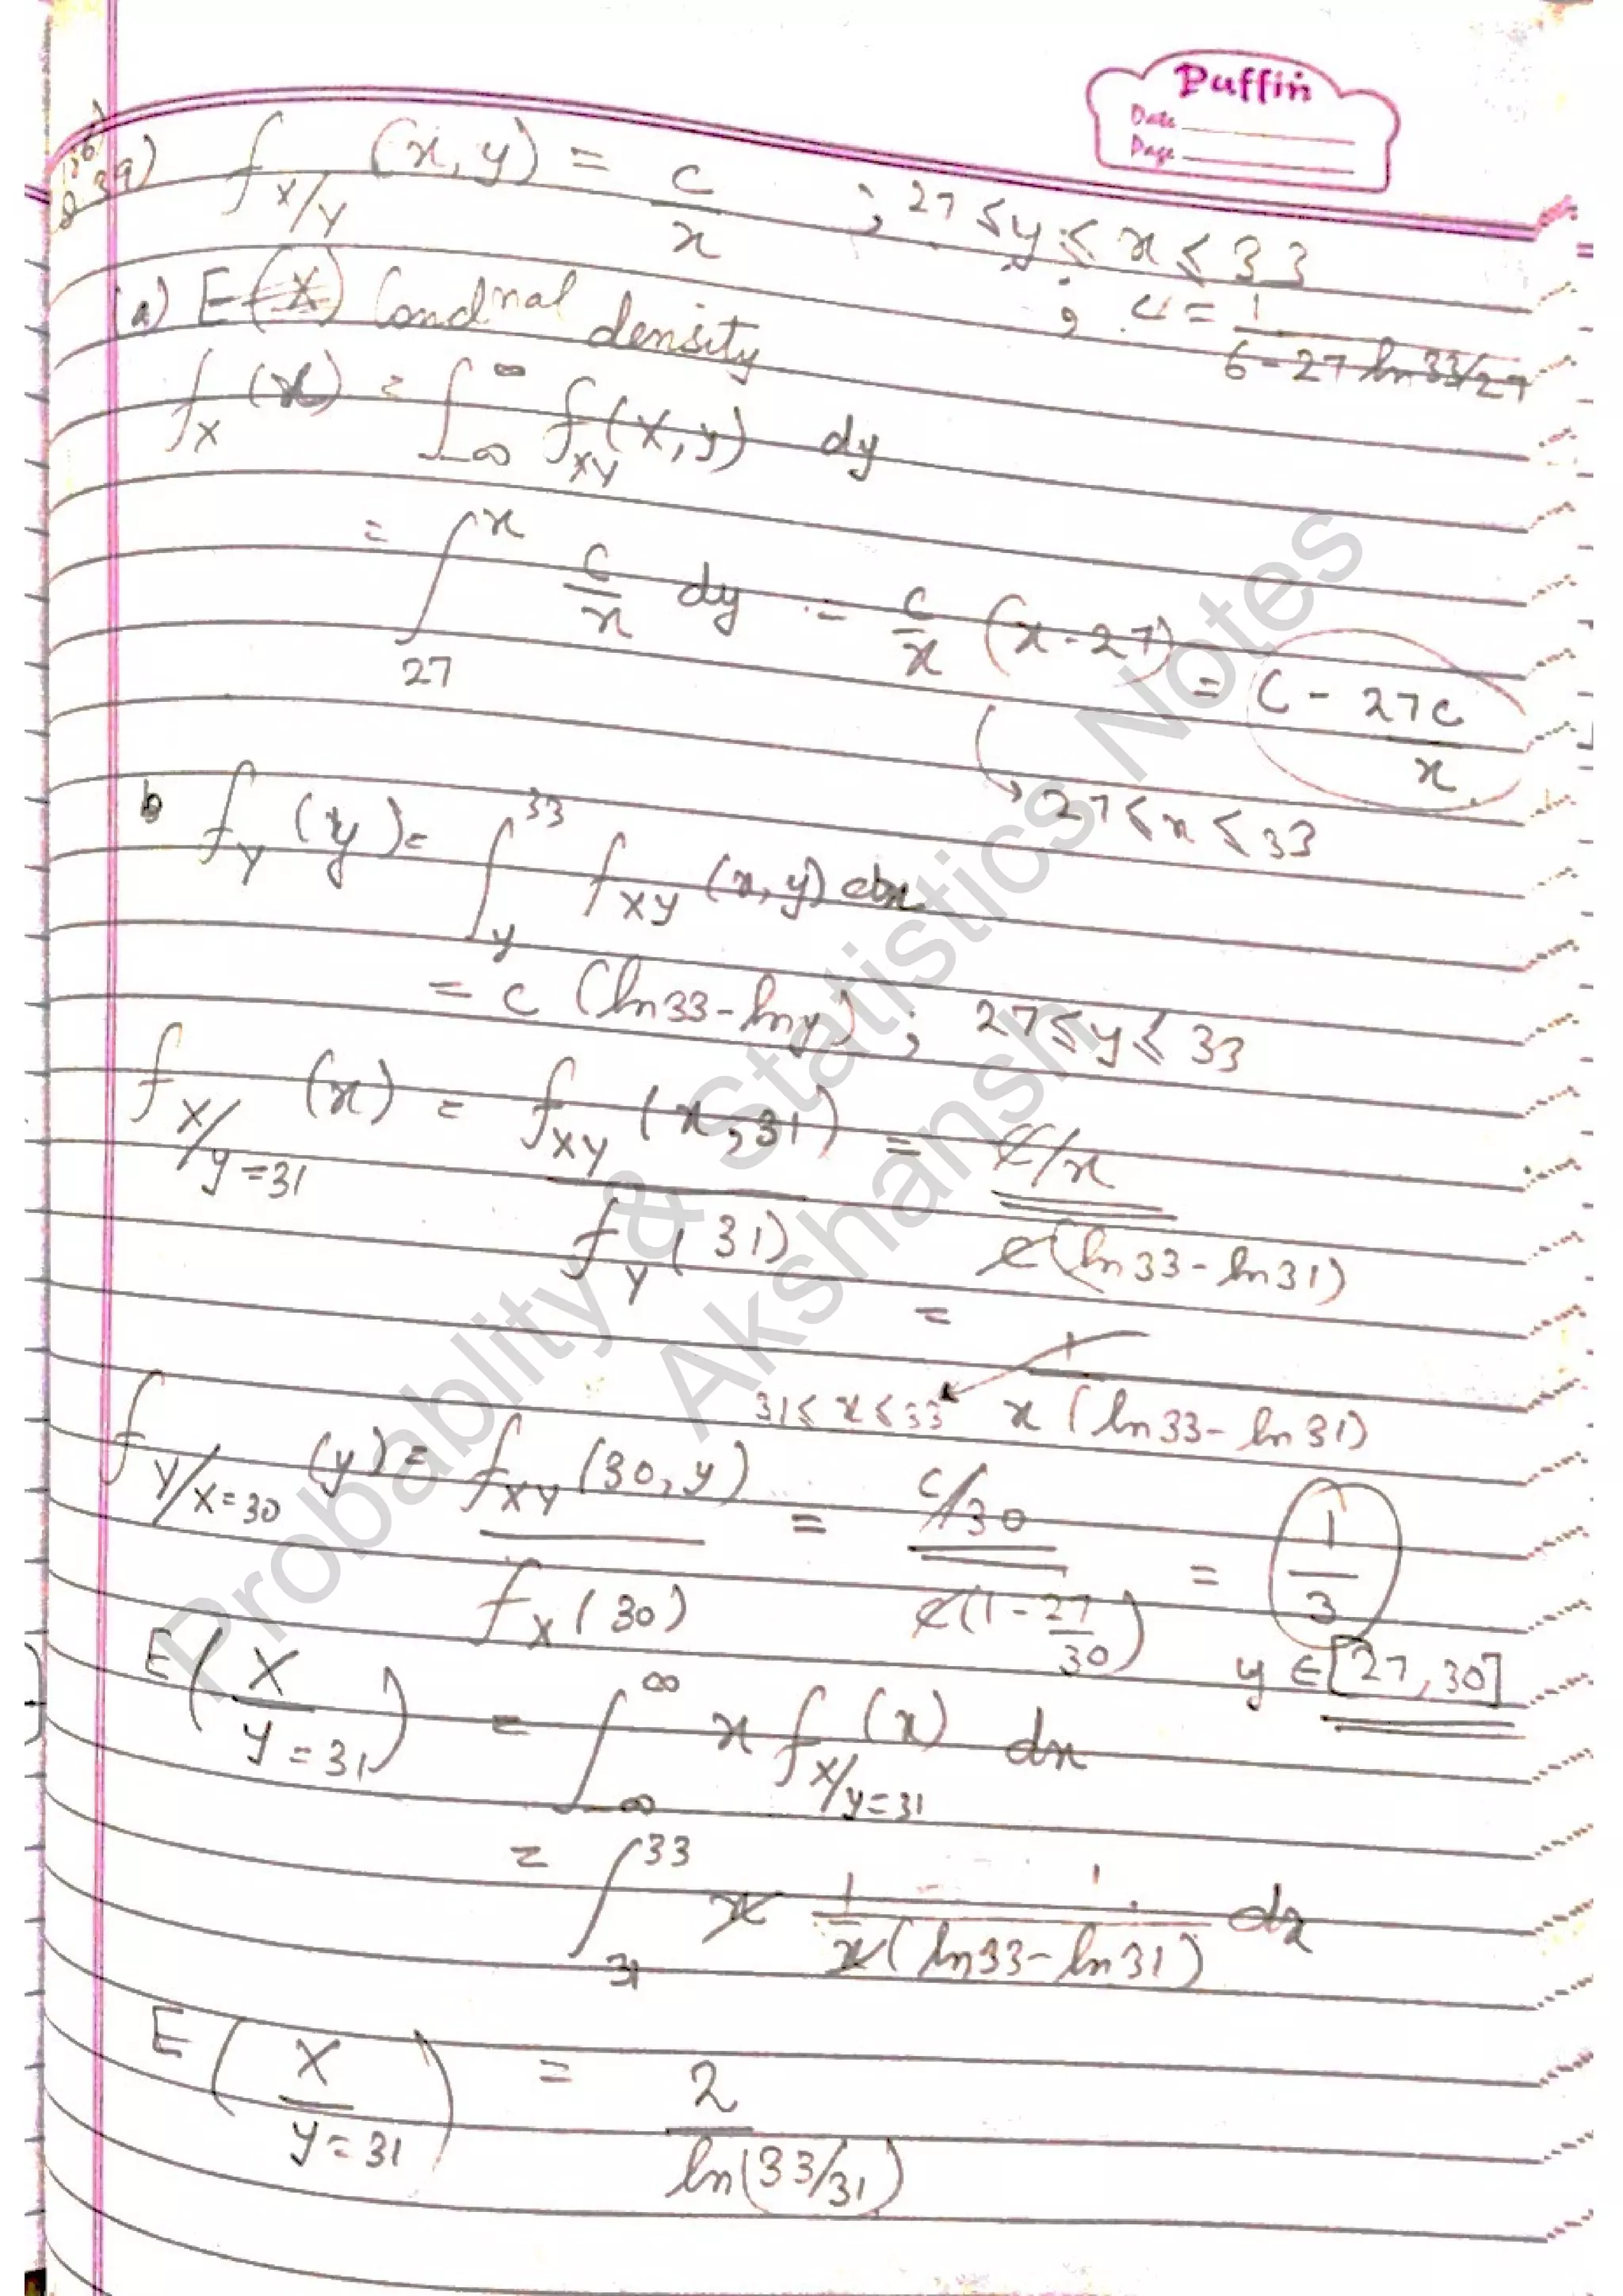 Puffin
Date
Page
39) f_{X/Y} (x, y) = c/x ; 27 ≤ y ≤ x ≤ 33
; c = 1/(6 - 27 ln 33/27)
a) E(X) Condnal density
f_X (x) = ∫_{-∞}^{∞} f_{XY} (x, y) dy
= ∫_{27}^{x} c/x dy = c/x (x - 27) = C - 27c/x
27 ≤ x ≤ 33
b f_Y (y) = ∫_{y}^{33} f_{XY} (x, y) dx
= c (ln33 - lny) ; 27 ≤ y ≤ 33
f_{X/y=31} (x) = f_{XY} (x, 31) / f_Y (31) = c/x / c(ln33 - ln31)
= 1 / x (ln33 - ln31)
31 ≤ x ≤ 33
f_{Y/X=30} (y) = f_{XY} (30, y) / f_X (30) = c/30 / c(1 - 27/30) = 1/3
y ∈ [27, 30]
E(X / Y=31) = ∫_{-∞}^{∞} x f_{X/Y=31} (x) dx
= ∫_{31}^{33} x 1 / x(ln33 - ln31) dx
E(X / Y=31) = 2 / ln(33/31)
Probablity & Statistics Notes
Akshansh